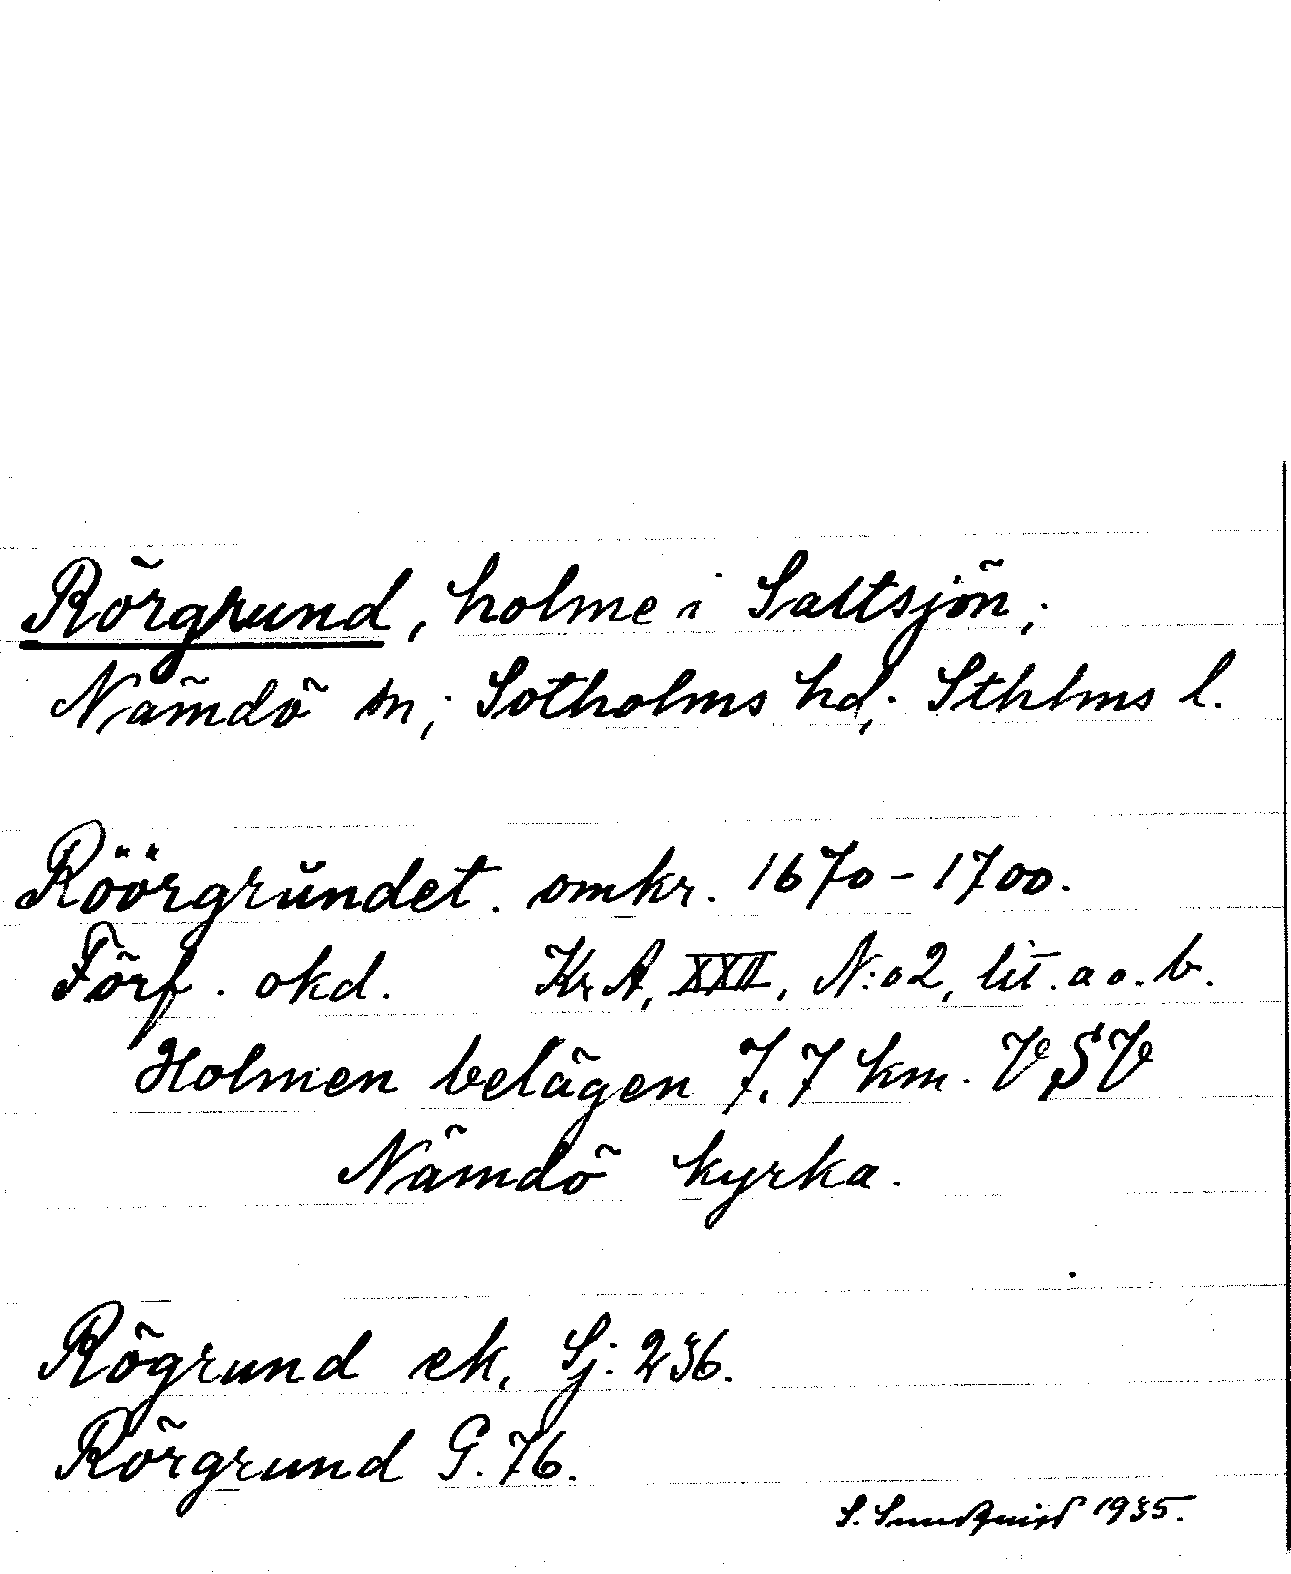 Rörgrund, holme i Saltsjön;
Nämdö sn; Sotholms hd; Sthlms l.
Röörgrŭndet. omkr. 1670-1700.
Förf. okd. KrA, XXII, N:o2, lit. a o. b.
Holmen belägen 7.7 km. VSV
Nämdö kyrka.
Rögrund ek. Sj: 236.
Rörgrund G. 76.
S. Sundquist 1935.